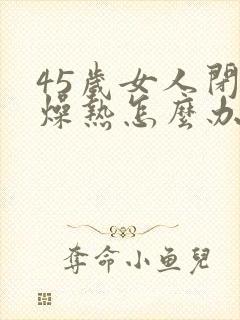 45歲女人閉
燥熱怎麼办
奪命小鱼兒